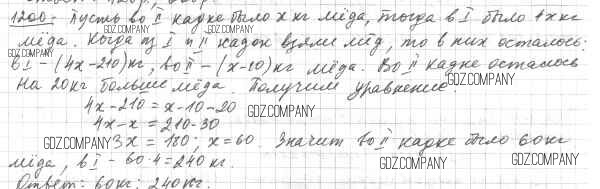 1200. Пусть во II кадке было x кг мёда, тогда в I было 4x кг
GDZ.COMPANY
GDZ.COMPANY
мёда. Когда из I и II кадок взяли мёд, то в них осталось:
GDZ.COMPANY
GDZ.COMPANY
в I – (4x-210) кг, во II – (x-10) кг мёда. Во II кадке осталось
На 20 кг больше мёда. Получим уравнение:
GDZ.COMPANY
4x-210 = x-10-20
GDZ.COMPANY
4x-x = 210-30
GDZ.COMPANY
3x = 180; x=60. Значит во II кадке было 60 кг
GDZ.COMPANY
мёда, в I – 60·4=240 кг.
GDZ.COMPANY
GDZ.COMPANY
Ответ: 60 кг; 240 кг.